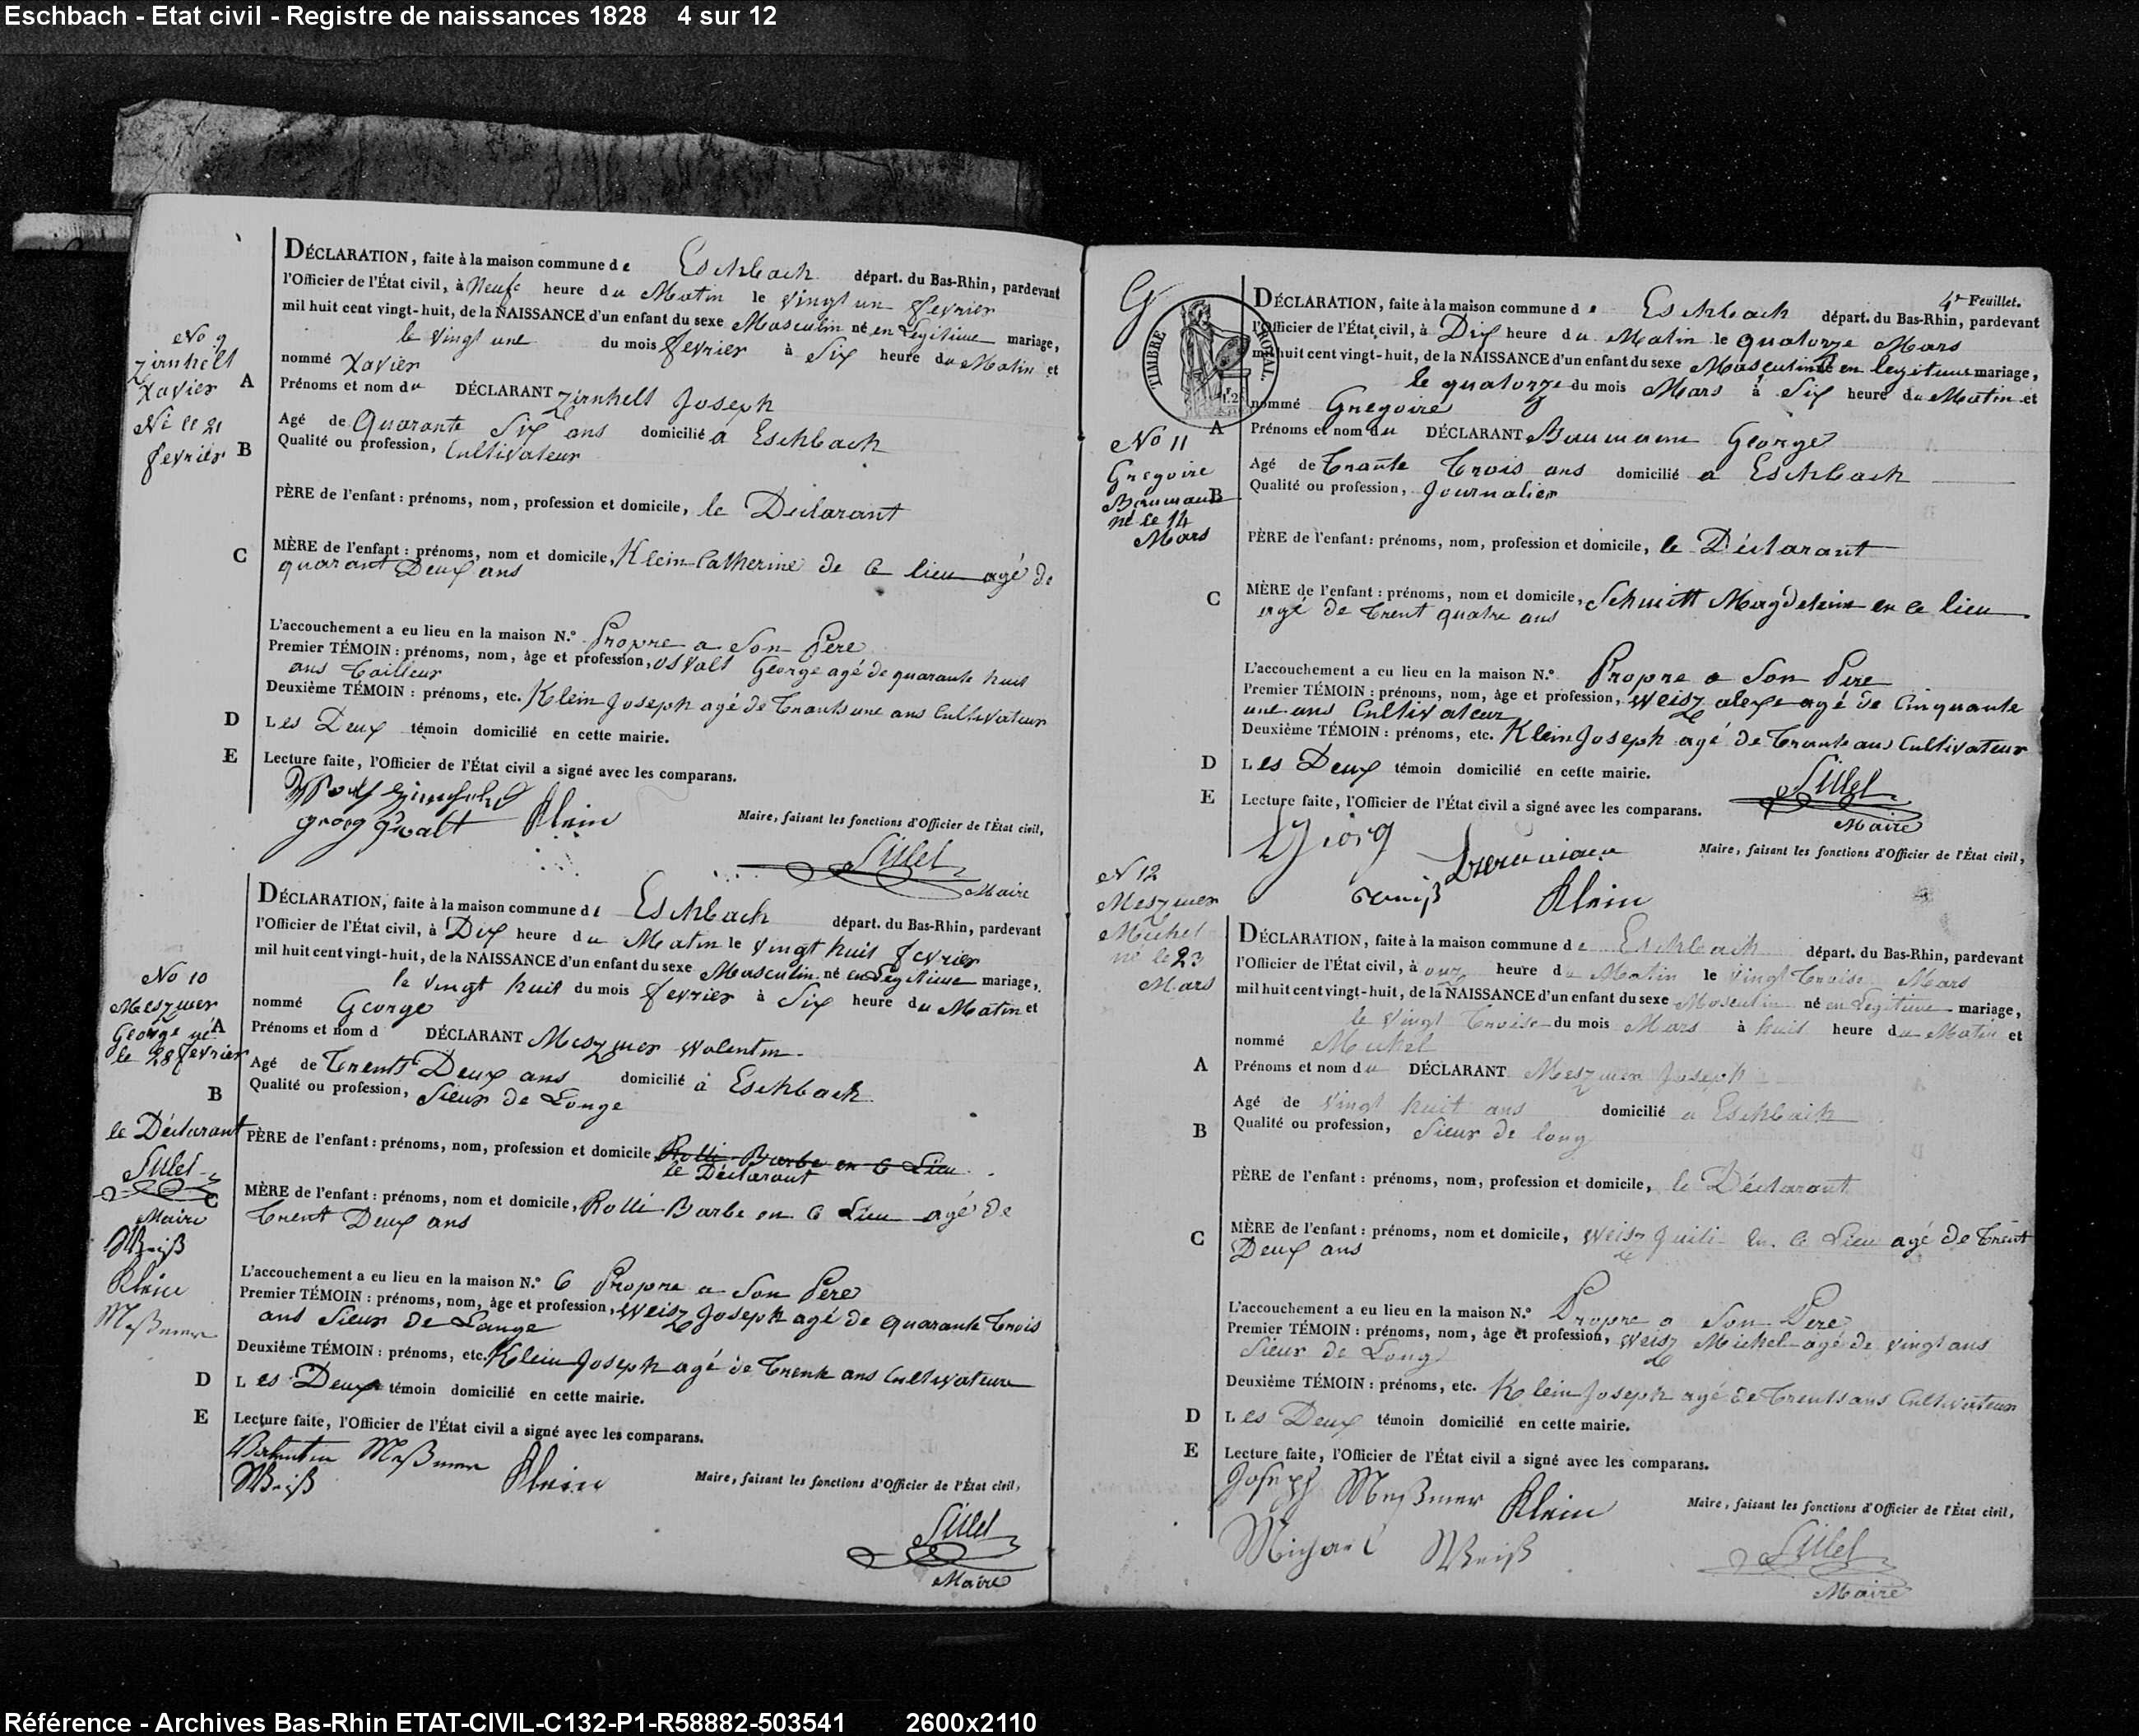 Eschbach - Etat civil - Registre de naissances 1828 4 sur 12
DÉCLARATION, faite à la maison commune de Eschbach départ. du Bas-Rhin, pardevant
l'Officier de l'État civil, à Neufe heure du Matin le vingt un fevrier
mil huit cent vingt-huit, de la NAISSANCE d'un enfant du sexe Masculin né en Legitime mariage,
le vingt une du mois fevrier à Six heure du Matin et
nommé Xavier
No 9
Zirnhelt
Xavier
Né le 21
fevrier
A Prénoms et nom du DÉCLARANT Zirnhelt Joseph
Agé de Quarante Six ans domicilié a Eschbach
B Qualité ou profession, Cultivateur
PÈRE de l'enfant : prénoms, nom, profession et domicile, le Déclarant
C MÈRE de l'enfant : prénoms, nom et domicile, Klein Catherine de ce lieu agé de
quarant Deux ans
L'accouchement a eu lieu en la maison N.° Propre a Son Père
Premier TÉMOIN : prénoms, nom, âge et profession, Osvalt George agé de quarante huit
ans Tailleur
Deuxième TÉMOIN : prénoms, etc. Klein Joseph agé de Trants une ans Cultivateur
D Les Deux témoin domicilié en cette mairie.
E Lecture faite, l'Officier de l'État civil a signé avec les comparans.
Klein
Maire, faisant les fonctions d'Officier de l'État civil,
Sillel
Maire
DÉCLARATION, faite à la maison commune de Eschbach départ. du Bas-Rhin, pardevant
l'Officier de l'État civil, à Dix heure du Matin le vingt huit fevrier
mil huit cent vingt-huit, de la NAISSANCE d'un enfant du sexe Masculin né en Legitime mariage,
le vingt huit du mois fevrier à Six heure du Matin et
nommé George
No 10
Meszmer
George né
le 28 fevrier
A Prénoms et nom d DÉCLARANT Meszmer Valentin
Agé de Trents Deux ans domicilié à Eschbach
B Qualité ou profession, Sieur de Longe
le Déclarant
Sillel
Maire
Weiß
Klein
Meßmer
PÈRE de l'enfant : prénoms, nom, profession et domicile, Rolli Barbe en ce Lieu
le Déclarant
C MÈRE de l'enfant : prénoms, nom et domicile, Rolli Barbe en ce Lieu agé de
Trent Deux ans
L'accouchement a eu lieu en la maison N.° 6 Propre a Son Père
Premier TÉMOIN : prénoms, nom, âge et profession, Weisz Joseph agé de quarante Trois
ans Sieur de Longe
Deuxième TÉMOIN : prénoms, etc. Klein Joseph agé de Trente ans Cultivateur
D Les Deux témoin domicilié en cette mairie.
E Lecture faite, l'Officier de l'État civil a signé avec les comparans.
Valentin Meßmer
Weiß Klein
Maire, faisant les fonctions d'Officier de l'État civil,
Sillel
Maire
4e Feuillet.
TIMBRE ROYAL.
DÉCLARATION, faite à la maison commune de Eschbach départ. du Bas-Rhin, pardevant
l'Officier de l'État civil, à Dix heure du Matin le quatorze Mars
mil huit cent vingt-huit, de la NAISSANCE d'un enfant du sexe Masculin né en legitime mariage,
le quatorze du mois Mars à Six heure du Matin et
nommé Gregoire
No 11
Gregoire
Baumann
né le 14
Mars
A Prénoms et nom du DÉCLARANT Baumann George
Agé de Trante Trois ans domicilié a Eschbach
B Qualité ou profession, Journalier
PÈRE de l'enfant : prénoms, nom, profession et domicile, le Déclarant
C MÈRE de l'enfant : prénoms, nom et domicile, Schmitt Magdeleine en ce lieu
agé de Trent quatre ans
L'accouchement a eu lieu en la maison N.° Propre a Son Père
Premier TÉMOIN : prénoms, nom, âge et profession, Weisz alexe agé de Cinquante
une ans Cultivateur
Deuxième TÉMOIN : prénoms, etc. Klein Joseph agé de Trante ans Cultivateur
D Les Deux témoin domicilié en cette mairie.
E Lecture faite, l'Officier de l'État civil a signé avec les comparans.
Sillel
Maire
Maire, faisant les fonctions d'Officier de l'État civil,
Georg Baumann
Weiß Klein
N 12
Meszmer
Michel
né le 23
Mars
DÉCLARATION, faite à la maison commune de Eschbach départ. du Bas-Rhin, pardevant
l'Officier de l'État civil, à onz heure du Matin le vingt Troise Mars
mil huit cent vingt-huit, de la NAISSANCE d'un enfant du sexe Masculin né en Legitime mariage,
le vingt Troise du mois Mars à huit heure du Matin et
nommé Michel
A Prénoms et nom du DÉCLARANT Meszmer Joseph
Agé de vingt huit ans domicilié a Eschbach
B Qualité ou profession, Sieur de long
PÈRE de l'enfant : prénoms, nom, profession et domicile, le Déclarant
C MÈRE de l'enfant : prénoms, nom et domicile, Weisz en ce Lieu agé de Trent
Deux ans
L'accouchement a eu lieu en la maison N.° Propre a Son Père
Premier TÉMOIN : prénoms, nom, âge et profession, Weisz Michel agé de vingt ans
Sieur de Long
Deuxième TÉMOIN : prénoms, etc. Klein Joseph agé de Trents ans Cultivateur
D Les Deux témoin domicilié en cette mairie.
E Lecture faite, l'Officier de l'État civil a signé avec les comparans.
Joseph Meßmer Klein
Michael Weiß
Maire, faisant les fonctions d'Officier de l'État civil,
Sillel
Maire
Référence - Archives Bas-Rhin ETAT-CIVIL-C132-P1-R58882-503541 2600x2110